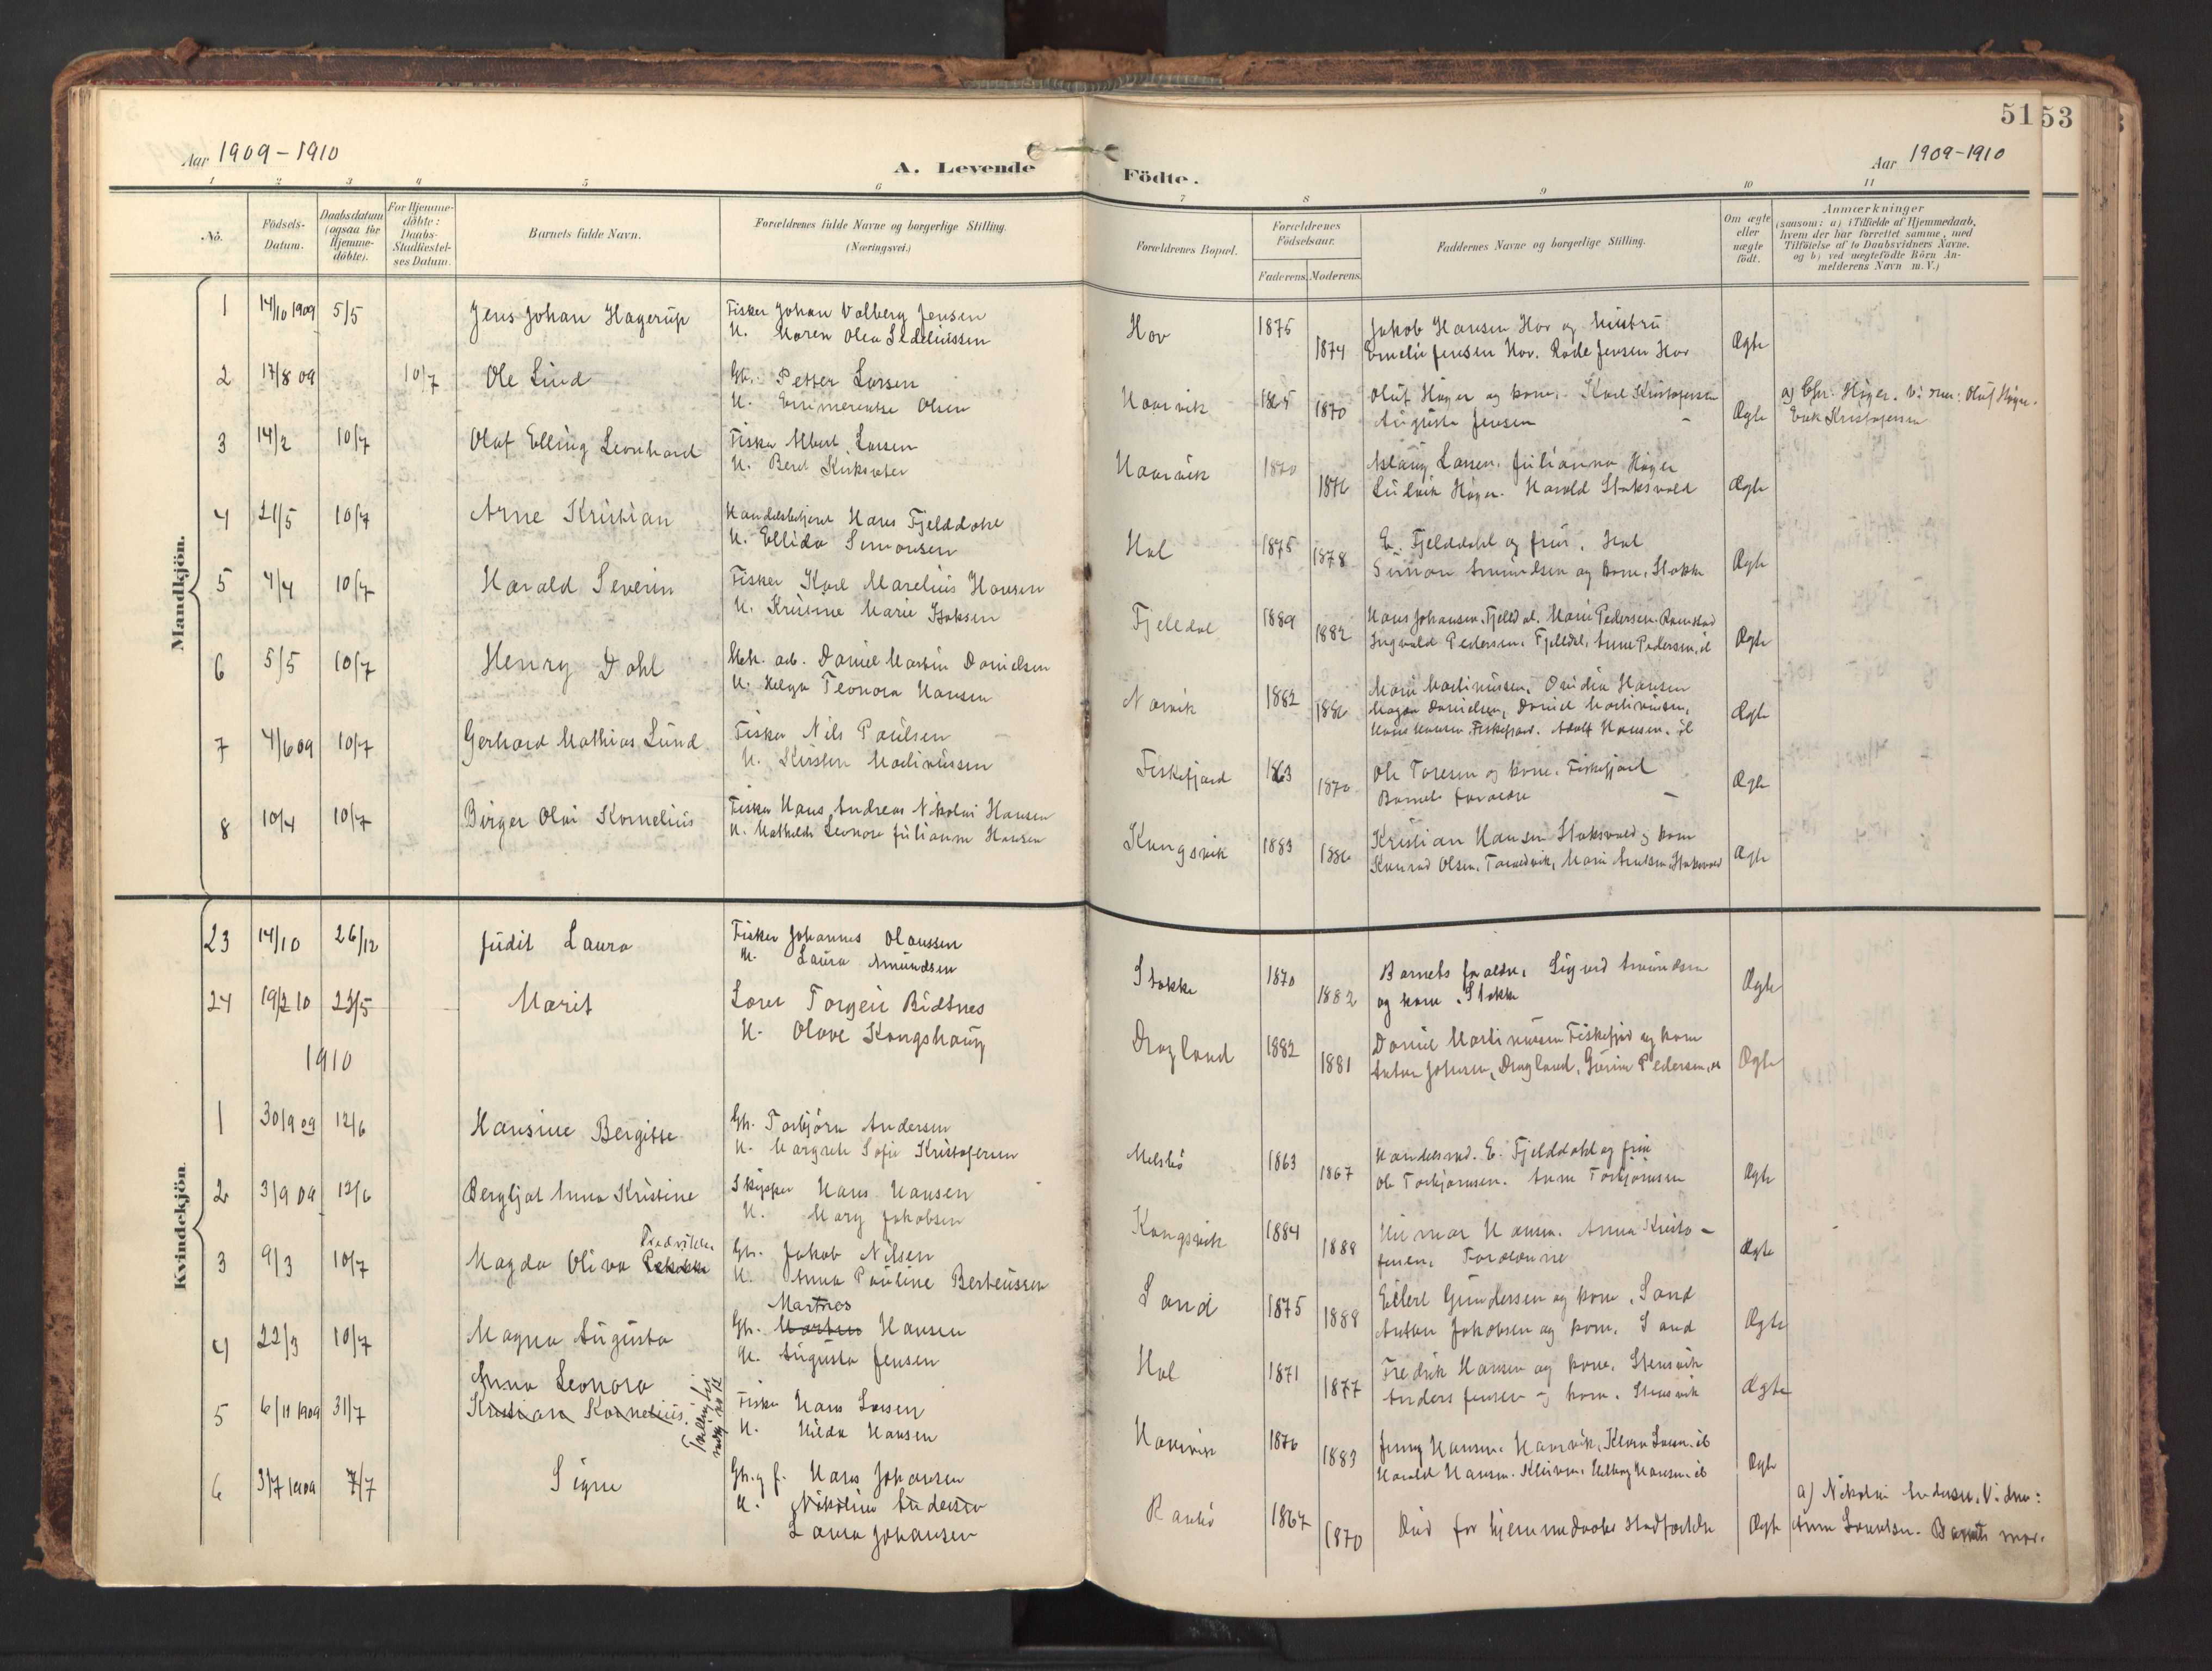 51
53
Aar 1909-1910
A. Levende
Födte.
Aar 1909-1910
1 2 3 4 5 6
7 8 9 10 11
No.
Födsels-
Datum.
Daabsdatum
(ogsaa for
Hjemme-
döbte).
For Hjemme-
döbte:
Daabs-
Stadfæstel-
ses Datum.
Barnets fulde Navn.
Forældrenes fulde Navne og borgerlige Stilling.
(Næringsvei.)
Forældrenes Bopæl.
Forældrenes
Födselsaar.
Faderens. Moderens.
Faddernes Navne og borgerlige Stilling.
Om ægte
eller
uægte
födt.
Anmærkninger
(saasom: a) i Tilfælde af Hjemmedaab,
hvem der har forrettet samme, med
Tilföielse af to Daabsvidners Navne,
og b) ved uægtefödte Börn An-
melderens Navn m. V.)
Mandkjön.
1 14/10 1909 5/5 Jens Johan Hagerup Fisker Johan Valberg Jensen
H. Maren Olea Sedeliussen
Hov 1875 1874 Jakob Hansen Hov og hustru
Emelie Jensen Hov. Jensen Hov Ægte
2 17/8 09 10/7 Ole Lind Gb. Petter Larsen
H. Olsen
1865 1870 Oluf Høyer og kone.
Augusta Jensen Ægte
a) Chr. Høyer. Oluf Høyer.
3 14/2 10/7 Olaf Elling Leonhard Fisker Albert Larsen
H. Beret
1870 1876 Aslaug Larsen. Julianna Høyer
Ludvik Høyer. Harald Staksvold Ægte
4 21/5 10/7 Arne Kristian Handelsbetjent Hans Fjelddahl
H. Ellida Simonsen
Hol 1875 1878 E. Fjelddahl og frue, Hol
Simon Amundsen og kone, Stokke Ægte
5 4/4 10/7 Harald Severin Fisker Karl Marelius Hansen
H. Kristine Marie Isaksen
Fjelldal 1889 1882 Hans Johansen, Fjelldal. Marie Pedersen.
Ingvald Pedersen, Fjelldal, Anne Pedersen, il Ægte
6 5/5 10/7 Henry Dahl arb. Daniel Martin Danielsen
H. Helga Leonora Hansen
Narvik 1882 1886 Marie Martinussen, Hansen
Magna Danielsen, Daniel Martinussen,
Hans Hansen, Fiskefjord. Adolf Hansen. il Ægte
7 4/6 09 10/7 Gerhard Mathias Lund Fisker Nils Paulsen
H. Kirsten Martinussen
Fiskefjord 1863 1870 Ole Toresen og kone. Fiskefjord
Barnets forældre Ægte
8 10/4 10/7 Birger Olai Kornelius Fisker Hans Andreas Nikolai Hansen
H. Mathilde Leonore Julianne Hansen
Kongsvik 1883 1886 Kristian Hansen Staksvold og kone
Konrad Olsen, Marie Staksvold Ægte
Kvindekjön.
23 14/10 26/12 Judit Laura Fisker Johannes Olaussen
H. Laura Amundsen
Stokke 1870 1882 Barnets forældre, Sigurd Amundsen
og kone. Stokke Ægte
24 19/2 10 23/5 Marit Lærer Torgeir Bidtnes
H. Olave Kongshaug
Dragland 1882 1881 Daniel Martinussen Fiskefjord og kone
Anton Johnsen, Dragland, Pedersen, Ægte
1910
1 30/9 09 12/6 Hansine Bergitte Gb. Torbjørn Andersen
H. Margrete Sofie Kristofersen
Melsbø 1863 1867 Handelsmd. E. Fjelddahl og frue
Ole Torbjørnsen. Anne Torbjørnsen Ægte
2 3/9 09 12/6 Bergljot Anna Kristine Skipper Hans Hansen
H. Mary Jakobsen
Kongsvik 1884 1888 Hansen. Anna Kristo-
fersen. Forældrene Ægte
3 9/3 10/7 Magda Oliva Gb. Jakob Nilsen
H. Anna Pauline Berteussen
Sand 1875 1888 Eilert Gundersen og kone, Sand
Anton Jakobsen og kone, Sand Ægte
4 22/3 10/7 Magna Augusta Martines
Gb. Morten Hansen
H. Augusta Jensen
Hol 1871 1877 Fredrik Hansen og kone, Stensvik
Anders Jensen og kone, Stensvik Ægte
5 6/11 1909 31/7 Anna Leonora
Kristian Kornelius. Fisker Hans Larsen
H. Hilda Hansen
1876 1883 Jenny Hansen. Klara Larsen. il
Harald Hansen. Hansen. il Ægte
6 3/7 1909 7/7 Signe Gb. og f. Hans Johansen
H. Nikoline Andersen
Laura Johansen
Ramsø 1867 1870 Død før hjemmedaabs stadfæstelse Ægte
a) Nikolai Andersen. Vidner:
Anna Barnets mor.